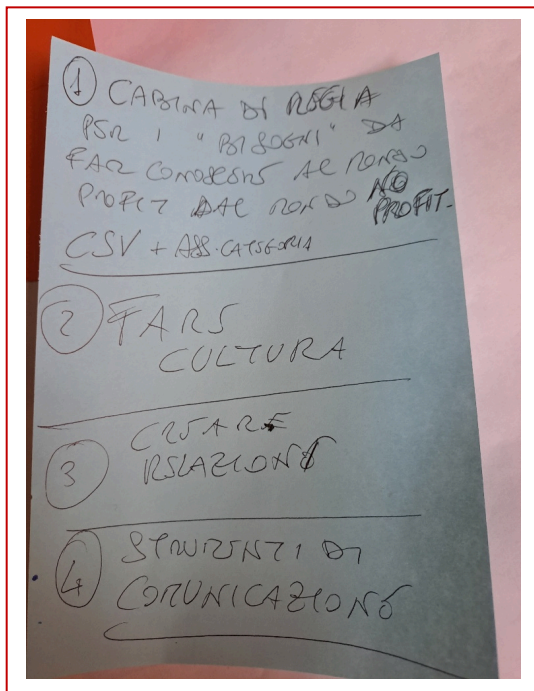 1 CABINA DI REGIA
PER I "BISOGNI" DA
FAR CONOSCERE AL MONDO
PROFIT DAL MONDO NO
PROFIT.
CSV + ASS. CATEGORIA
2 FARE
CULTURA
3 CREARE
RELAZIONE
4 STRUMENTI DI
COMUNICAZIONE